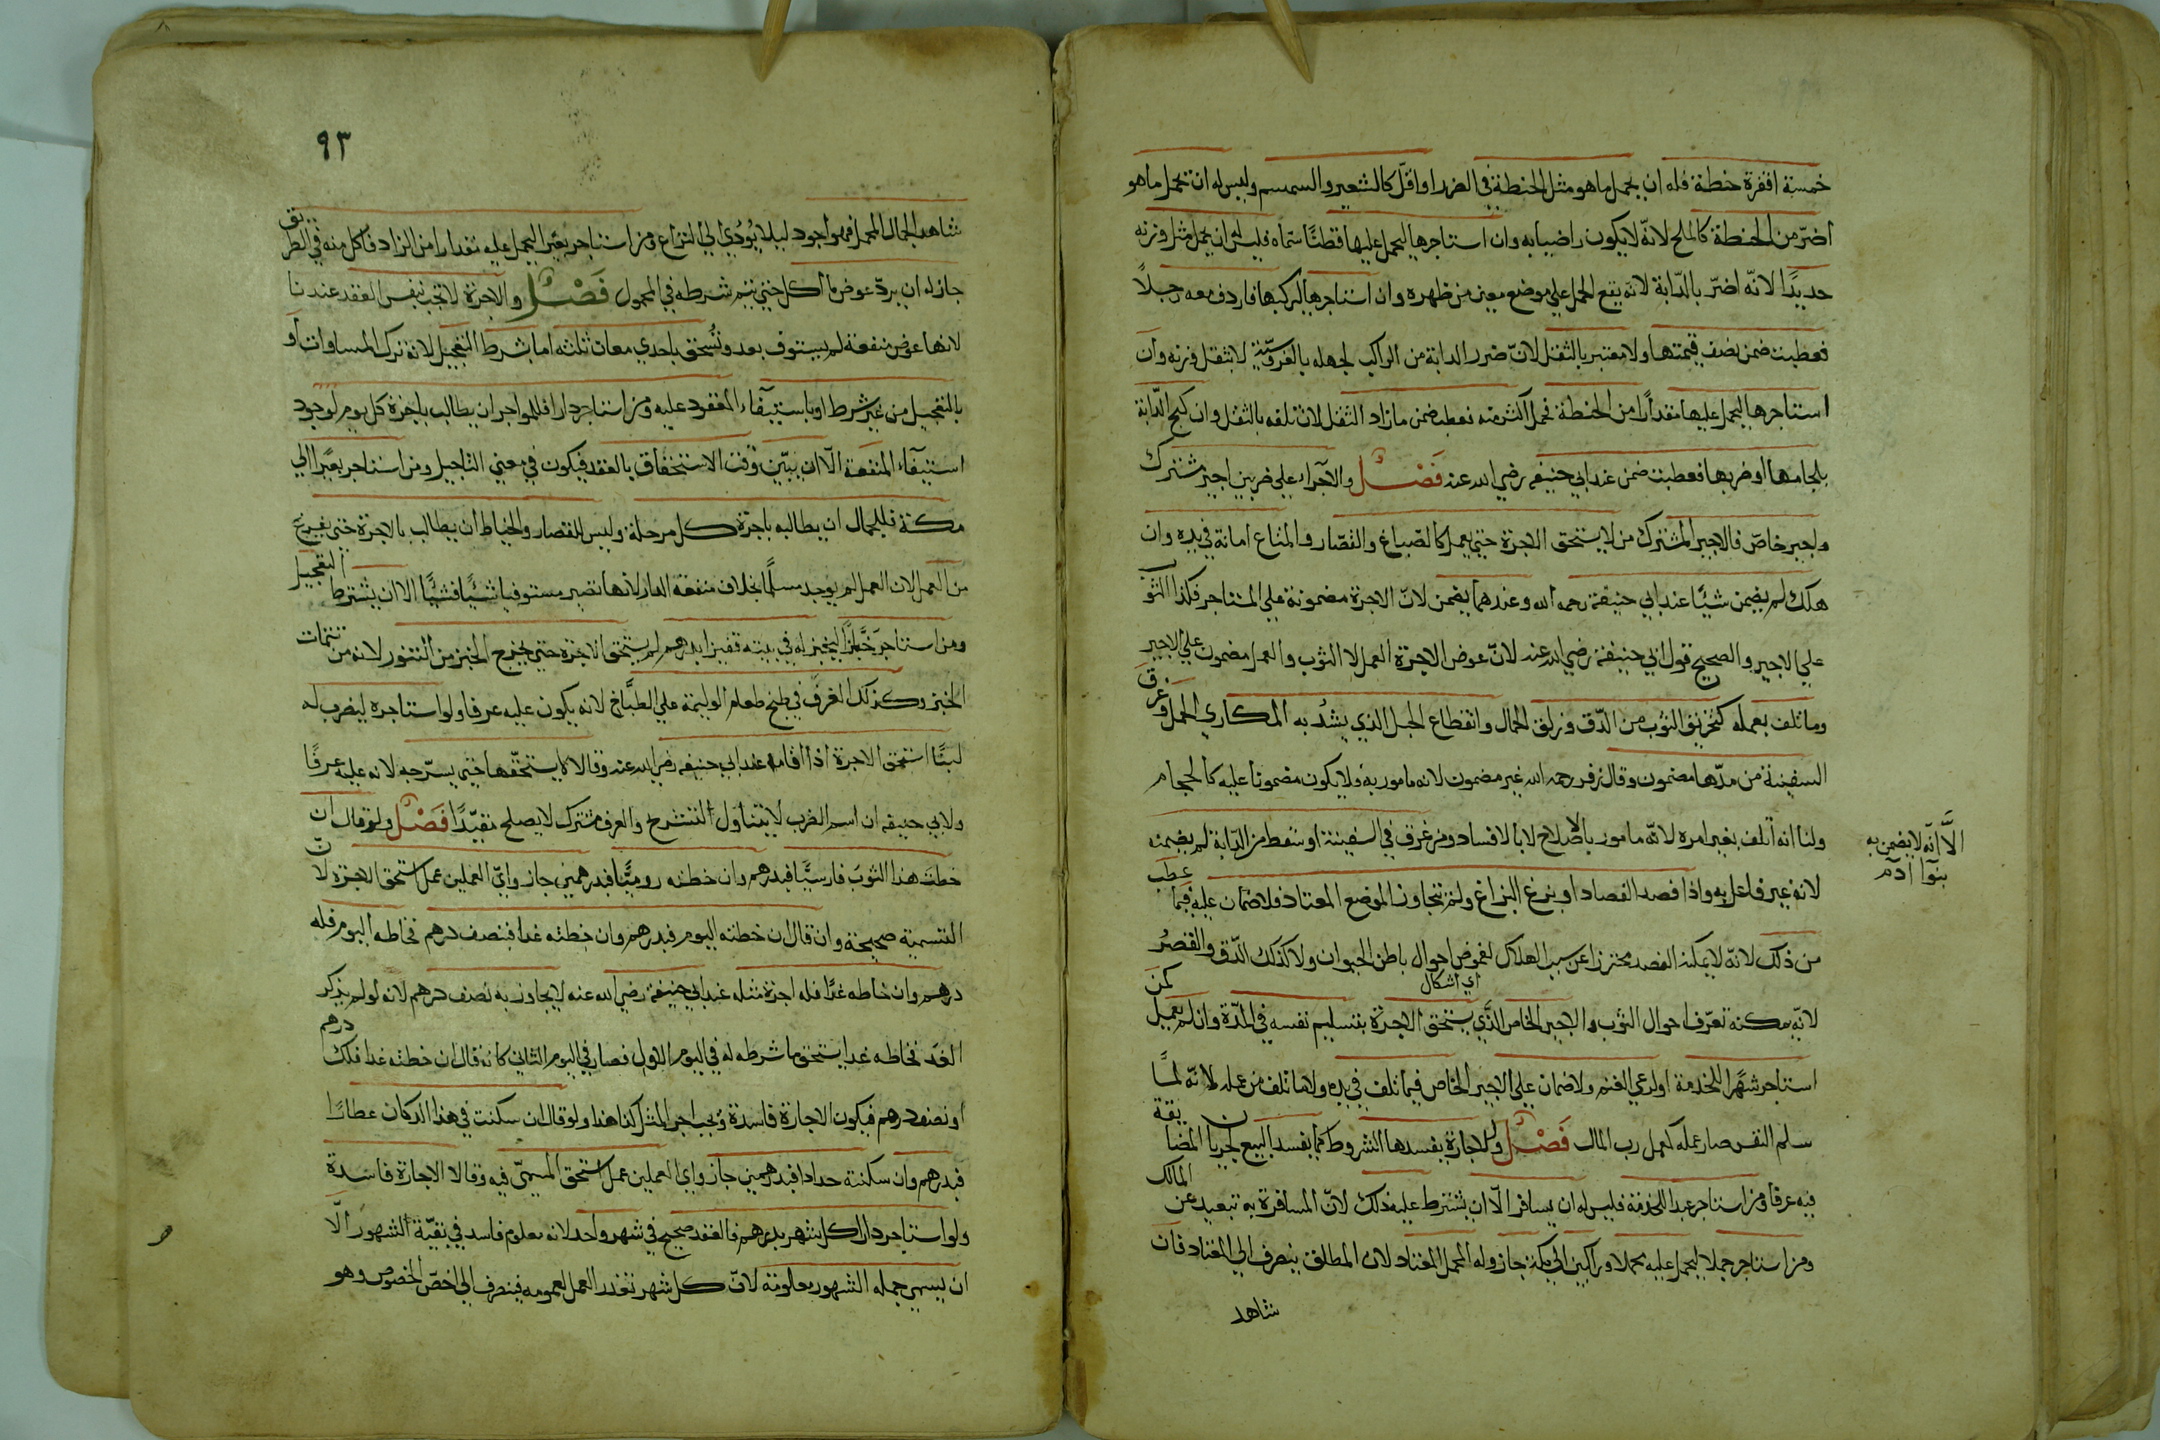 خمسة اقفزة حنطة فله ان يحمل ما هو مثل الحنطة في الضرر او اقلّ كالشعير والسمسم وليس له ان يحمل ما هو
اضرّ من الحنطة كالملح لانّه لا يكون راضيا به وان استاجرها ليحمل عليها قطنًا سمّاه فليس له ان يحمل مثل وزنه
حديدًا لانّه اضرّ بالدّابة لانه يقع الحمل علي موضع معين من ظهره وان استاجرها ليركبها فاردف معه رجلاً
فعطبت ضمن نصف قيمتها ولا معتبر بالثقل لانّ ضرر الدابة من الراكب لجهله بالفروسيّة لا بثقل وزنه وان
استاجرها ليحمل عليها مقدارًا من الحنطة فحمل اكثر منه فعطبت ضمن ما زاد الثقل لانّ تلفه بالثقل وان كبح الدّابة
بلجامها او ضربها فعطبت ضمن عند ابي حنيفه رضي الله عنه فَصْل والاجراء علي ضربين اجير مشترك
واجير خاصّ فالاجير المشترك من لا يستحق الاجرة حتي يعمل كالصباغ والقصّار والمتاع امانة في يده وان
هلك لم يضمن شيئًا عند ابي حنيفة رحمه الله وعندهما يضمن لانّ الاجرة مضمونة علي المستاجر فكذا الثوب
علي الاجير والصحيح قول ابي حنيفة رضي الله عنه لانّ عوض الاجرة العمل لا الثوب والعمل مضمون علي الاجير
وما تلف بعمله كتخريق الثوب من الدّق وزلق الحمال وانقطاع الحبل الذي يشدُ به المكاري الحمل وغرق
السفينة من مدّها مضمون وقال زفر رحمه الله غير مضمون لانه مامور به فلا يكون مضمونا عليه كالحجام
ولنا انه اتلف بغير امره لانّه مامور بالاصلاح لا بالافساد ومن غرق في السفينة او سقط من الدّابة لم يضمنه
الاّ انّه لا يضمن به
بنوا آدم
لانه غير فاعل به واذا فصد الفصاد او بزغ البزاغ ولم يتجاوز الموضع المعتاد فلا ضمان عليه فيما عطب
من ذلك لانّه لا يمكنه الفصد محترزا عن سبب الهلاك لغموض احوال باطن الحيوان ولا كذلك الدّق والقصرُ
اي اشكال
لانّه يمكنه تعرّف احوال الثوب والاجير الخاص الذَّي يستحق الاجرة بتسليم نفسه في المدّة وان لم يعمل كمن
استاجر شهرا للخدمة او لرعي الغنم ولا ضمان علي الاجير الخاص فيما تلف في يده ولا ما تلف من عمله لانّه لمّا
سلم النفس صار عمله كعمل رب المال فَصْل والاجارة يفسدها الشروط كما يفسد البيع لجريان المضايقة
فيه عرفا ومن استاجر عبدا للخدمة فليس له ان يسافر الّا ان يشترط عليه ذلك لانّ المسافرة به تبعيد عن المالك
ومن استاجر جملا ليحمل عليه محملا وراكبين الي مكة جاز وله المحمل المعتاد لان المطلق ينصرف الي المعتاد فان
شاهد
٩٣
شاهد الجمال المحمل فهو اجود ليلا يؤدي الي النزاع ومن استاجر بعيرا ليحمل عليه مقدارا من الزاد فاكل منه في الطريق
جاز له ان يردّ عوض ما اكل حتي يتم شرطه في المحمول فَصْل والاجرة لا تجب بنفس العقد عندنا
لانها عوض منفعة لم يستوف بعد وتُستحق باحدي معان ثلثه اما بشرط التعجيل لانه ترك المساوات او
بالتعجيل من غير شرط او باستيفآء المعقود عليه ومن استاجر دارا فللمواجر ان يطالب باجرة كل يوم لوجود
استيفآء المنفعة الّا ان يبيّن وقت الاستحقاق بالعقد فيكون في معني التاجيل ومن استاجر بعيرًا الي
مكة فللجمال ان يطالبه باجرة كل مرحلة وليس للقصار والخياط ان يطالب بالاجرة حتي يفرغ
من العمل لان العمل لم يوجد مسلّمًا بخلاف منفعة الدار لانها تصير مستوفيا شيئًا فشيئًا الا ان يشترط التعجيل
ومن استاجر خبَّازًا ليخبز له في بيته قفيزا بدرهم لم يستحق الاجرة حتي يخرج الخبز من التنور لانه من تتمات
الخبز وكذلك الغرف في طبخ طعام الوليمة علي الطبَّاخ لانه يكون عليه عرفا ولو استاجره ليضرب له
لبنًا استحق الاجرة اذا اقامه عند ابي حنيفه رضي الله عنه وقالا لا يستحقّها حتي يسرّجه لانه عليه عرفًا
ولابي حنيفه ان اسم الضرب لا يتناول التشريح والعرف مشترك لا يصلح مقيّدًا فَصْل ولو قال ان
خطت هذا الثوب فارسيًّا فبدرهم وان خطته روميًّا فبدرهمين جاز وايّ العملين عمل استحق الاجرة لانّ
التسمية صحيحة وان قال ان خطته اليوم فبدرهم وان خطته غدا فبنصف درهم فخاطه اليوم فله
درهم وان خاطه غدًا فله اجرة مثله عند ابي حنيفة رضي الله عنه لا يجاوز به نصف درهم لانه لو لم يذكر
الغد فخاطه غدا يستحق ما شرطه له في اليوم الاول فصار في اليوم الثاني كانه قال ان خطته غدا فلك درهم
او نصف درهم فيكون الاجارة فاسدة ويجب اجر المثل كذا هذا ولو قال ان سكنت في هذا الدكان عطارًا
فبدرهم وان سكنته حدادا فبدرهمين جاز واي العملين عمل استحق المسمّي فيه وقالا الاجارة فاسدة
ولو استاجر دارا كل شهر بدرهم فالعقد صحيح في شهر واحد لانه معلوم فاسد في بقيّة الشهور الّا
ان يسمي جملة الشهور معلومة لانّ كل شهر تعذر العمل بعمومه فينصرف الي اخصّ الخصوص وهو